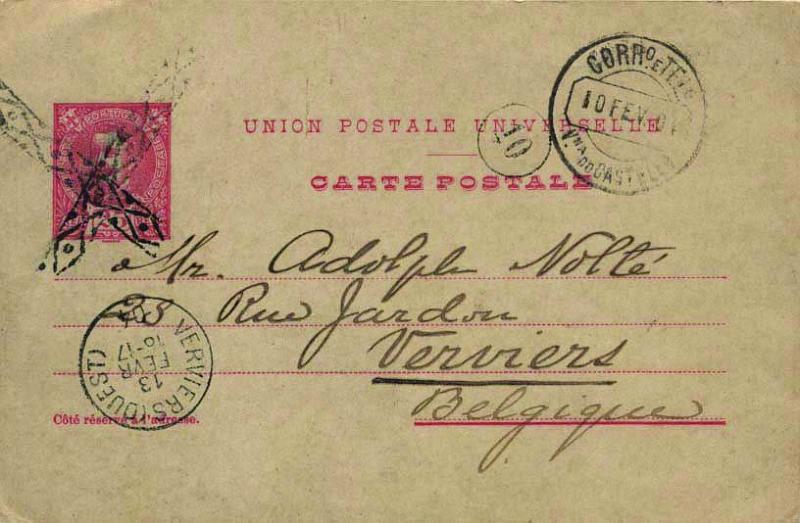 PORTUGAL
UNION POSTALE UNIVERSELLE
CARTE POSTALE
CORRO E TEL
10 FEV 01
VNA DO CASTELLO
10
Mr. Adolphe Nolté
23 Rue Jardon
Verviers
Belgique
VERVIERS (OUEST)
16-17
FEVR
13
Côté réservé à l'adresse.